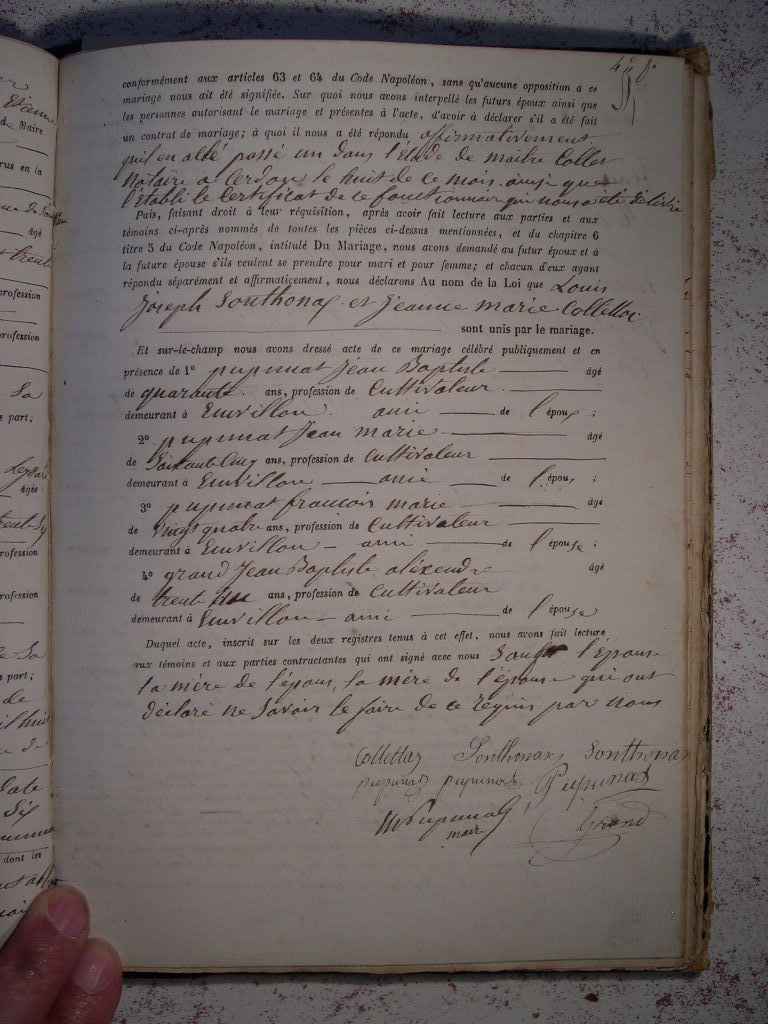 conformément aux articles 63 et 64 du Code Napoléon, sans qu'aucune opposition à ce
mariage nous ait été signifiée. Sur quoi nous avons interpellé les futurs époux ainsi que
les personnes autorisant le mariage et présentes à l'acte, d'avoir à déclarer s'il a été fait
un contrat de mariage; à quoi il nous a été répondu affirmativement
quil en a été passé un dans l'Etude de maitre Collet
Notaire a Cerdon le huit de ce mois, ainsi que
l'établi le Certificat de ce fonctionnaire qui nous a été délivré
Puis, faisant droit à leur réquisition, après avoir fait lecture aux parties et aux
témoins ci-après nommés de toutes les pièces ci-dessus mentionnées, et du chapitre 6
titre 5 du Code Napoléon, intitulé Du Mariage, nous avons demandé au futur époux et à
la future épouse s'ils veulent se prendre pour mari et pour femme; et chacun d'eux ayant
répondu séparément et affirmativement, nous déclarons Au nom de la Loi que Louis
Joseph Sonthonax et Jeanne marie Collettaz
sont unis par le mariage.
Et sur-le-champ nous avons dressé acte de ce mariage célébré publiquement et en
présence de 1° pupunat Jean Baptiste âgé
de quarante ans, profession de Cultivateur
demeurant à Emvillou ami de l'époux;
2° pupunat Jean marie âgé
de Soixante Cinq ans, profession de Cultivateur
demeurant à Emvillou ami de l'époux;
3° pupunat francois marie âgé
de Vingt quatre ans, profession de Cultivateur
demeurant à Emvillou ami de l'épouse;
4° grand Jean Baptiste aléxendre âgé
de trent ans, profession de Cultivateur
demeurant à Emvillou ami de l'épouse
Duquel acte, inscrit sur les deux registres tenus à cet effet, nous avons fait lecture
aux témoins et aux parties contractantes qui ont signé avec nous Sauf l'Epouse
la mère de l'époux, la mère de l'épouse qui ont
déclaré ne Savoir le faire de ce requis par nous
Collettaz Sonthonax Sonthonax
pupunat pupunat Pupunat
Pupunat Grand
maire